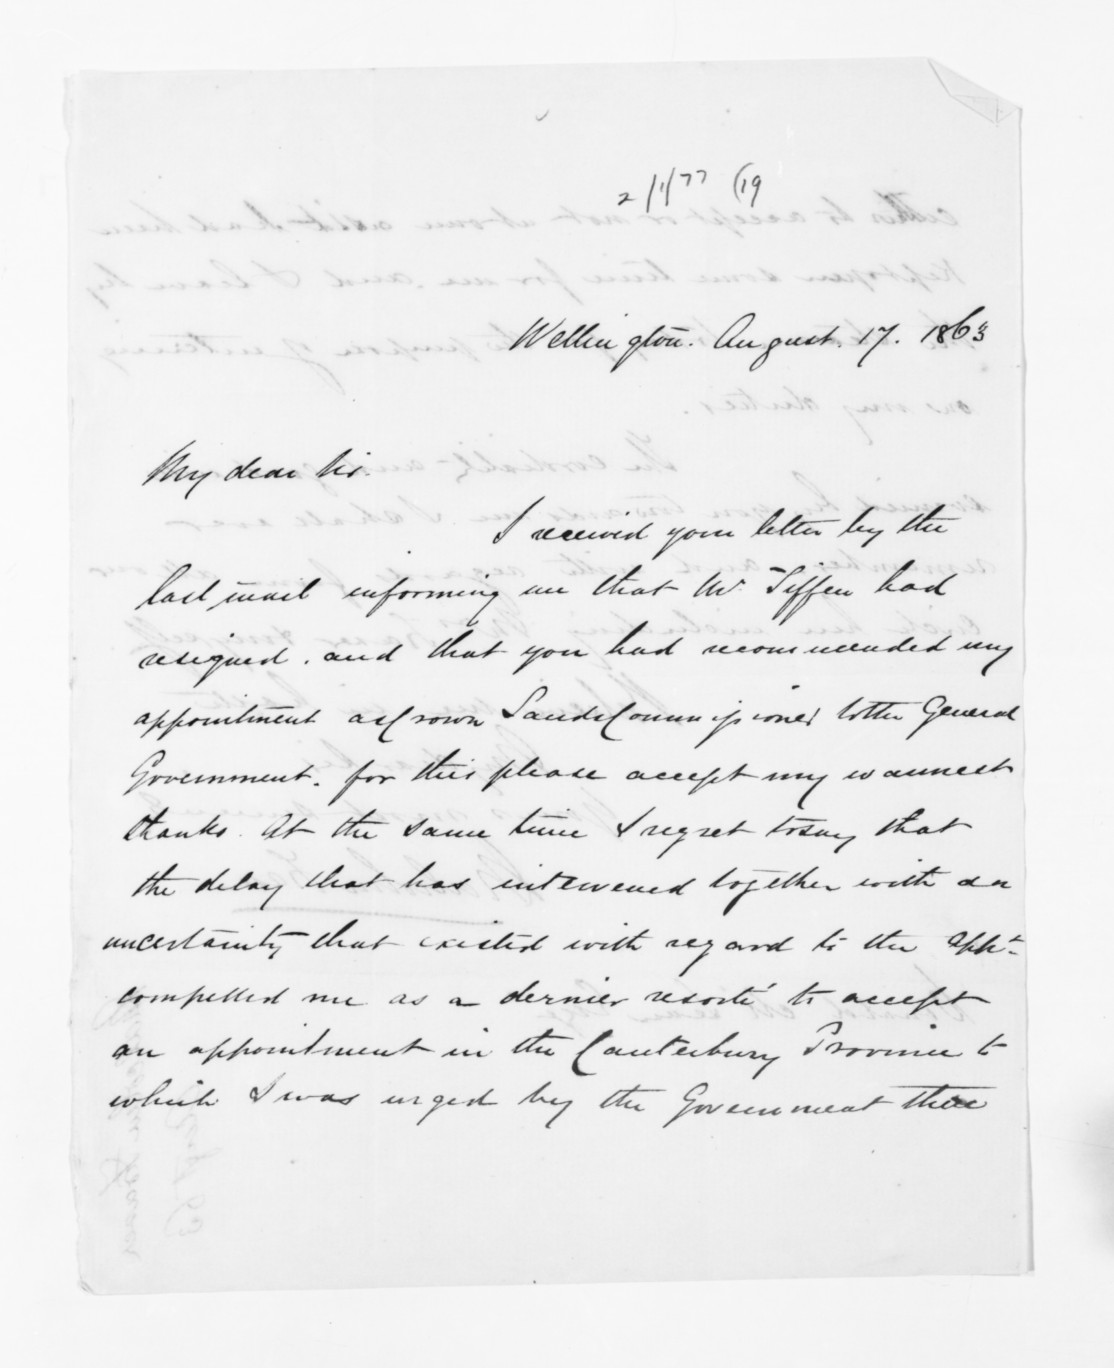 2/1/77 (19
Wellington. August. 17. 1863
My dear Sir.
I received your letter by the
last mail informing me that Mr. Tiffen had
resigned. and that you had recommended my
appointment as Crown Lands Commissioner to the General
Government. for this please accept my warmest
thanks. At the same time I regret to say that
the delay that has intervened together with an
uncertainty that existed with regard to the appt.
compelled me as a dernier resorte to accept
an appointment in the Canterbury Province to
which I was urged by the Government there